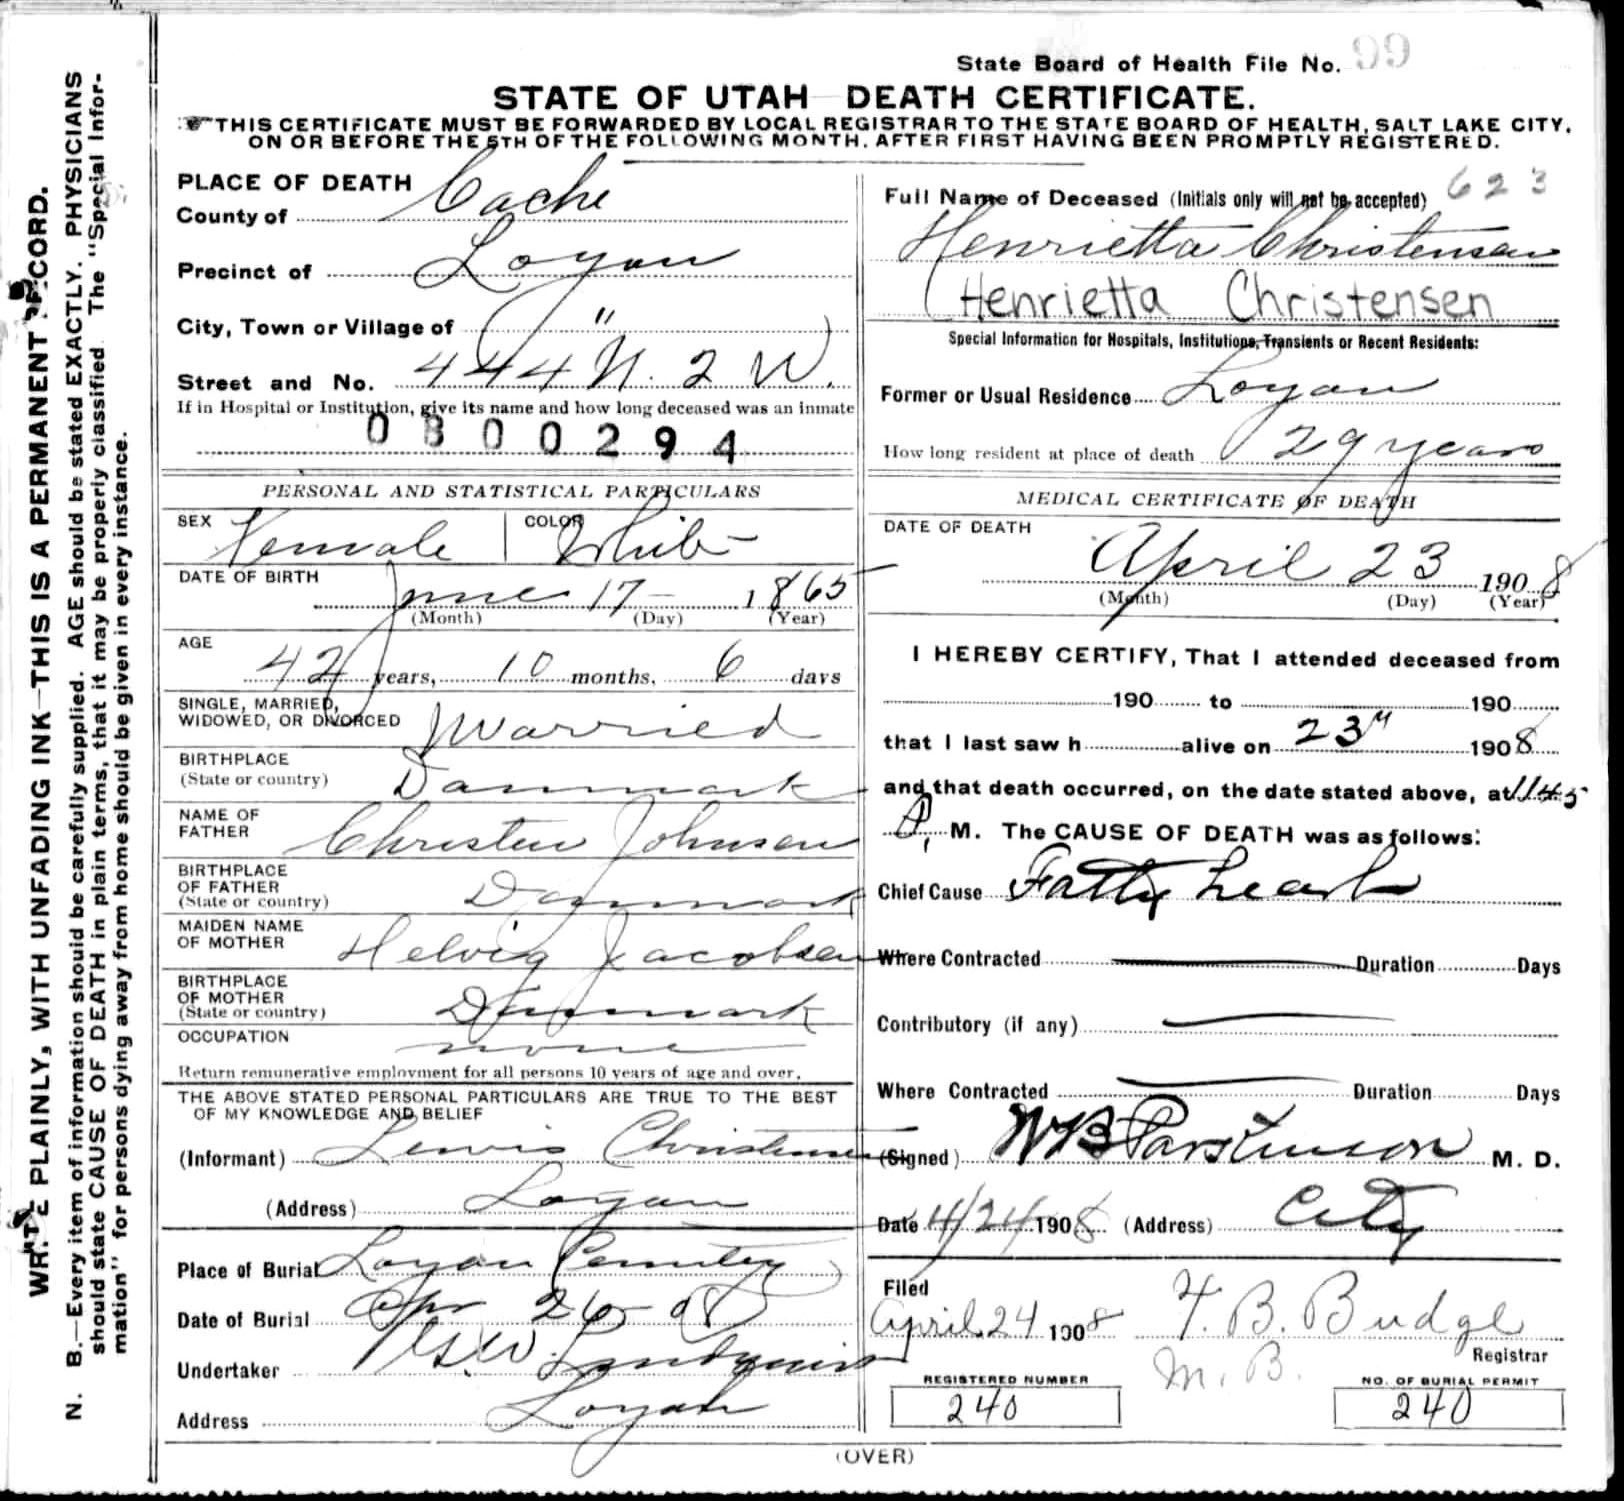 State Board of Health File No. 99
STATE OF UTAH DEATH CERTIFICATE.
THIS CERTIFICATE MUST BE FORWARDED BY LOCAL REGISTRAR TO THE STATE BOARD OF HEALTH, SALT LAKE CITY,
ON OR BEFORE THE 5TH OF THE FOLLOWING MONTH, AFTER FIRST HAVING BEEN PROMPTLY REGISTERED.
WRITE PLAINLY, WITH UNFADING INK—THIS IS A PERMANENT RECORD.
N. B.—Every item of information should be carefully supplied. AGE should be stated EXACTLY. PHYSICIANS
should state CAUSE OF DEATH in plain terms, that it may be properly classified. The "Special Infor-
mation" for persons dying away from home should be given in every instance.
PLACE OF DEATH
County of Cache
Precinct of Logan
City, Town or Village of "
Street and No. 444 N. 2 W.
If in Hospital or Institution, give its name and how long deceased was an inmate
0800294
PERSONAL AND STATISTICAL PARTICULARS
SEX Female COLOR White
DATE OF BIRTH June 17 1865
(Month) (Day) (Year)
AGE
42 years, 10 months, 6 days
SINGLE, MARRIED,
WIDOWED, OR DIVORCED Married
BIRTHPLACE
(State or country) Danmark
NAME OF
FATHER Christen Johnsen
BIRTHPLACE
OF FATHER
(State or country) Danmark
MAIDEN NAME
OF MOTHER Helvig Jacobsen
BIRTHPLACE
OF MOTHER
(State or country) Danmark
OCCUPATION none
Return remunerative employment for all persons 10 years of age and over.
THE ABOVE STATED PERSONAL PARTICULARS ARE TRUE TO THE BEST
OF MY KNOWLEDGE AND BELIEF
(Informant) Lewis Christensen
(Address) Logan
Place of Burial Logan Cemetery
Date of Burial Apr 26 08
Undertaker Lundquist
Address Logan
Full Name of Deceased (Initials only will not be accepted) 623
Henrietta Christensen
(Henrietta Christensen
Special Information for Hospitals, Institutions, Transients or Recent Residents:
Former or Usual Residence Logan
How long resident at place of death 29 years
MEDICAL CERTIFICATE OF DEATH
DATE OF DEATH
April 23 1908
(Month) (Day) (Year)
I HEREBY CERTIFY, That I attended deceased from
190 to 190
that I last saw h alive on 23rd 1908
and that death occurred, on the date stated above, at 1145
P. M. The CAUSE OF DEATH was as follows:
Chief Cause Fatty heart
Where Contracted Duration Days
Contributory (if any)
Where Contracted Duration Days
(Signed) W B Parkinson M. D.
Date 4/24 1908 (Address) City
Filed
April 24 1908 F. B. Budge
Registrar
M. B.
REGISTERED NUMBER
240
NO. OF BURIAL PERMIT
240
(OVER)